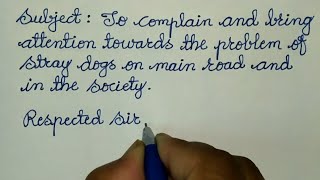 Subject : To complain and bring
attention towards the problem of
stray dogs on main road and
in the society.
Respected sir,